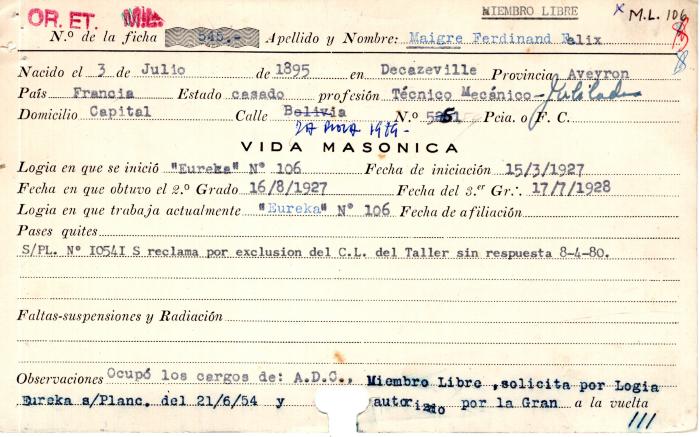 OR. ET. MIEMBRO LIBRE x M.L. 106
N.º de la ficha 545.- Apellido y Nombre: Maigre Ferdinand Felix
Nacido el 3 de Julio de 1895 en Decazeville Provincia Aveyron
País Francia Estado casado profesión Técnico Mecánico - Jubilado
Domicilio Capital Calle Bolivia N.º Pcia. o F. C.
1919-
VIDA MASONICA
Logia en que se inició "Eureka" Nº 106 Fecha de iniciación 15/3/1927
Fecha en que obtuvo el 2.º Grado 16/8/1927 Fecha del 3.er Gr∴. 17/7/1928
Logia en que trabaja actualmente "Eureka" Nº 106 Fecha de afiliación
Pases quites
S/PL. Nº I054I S reclama por exclusion del C.L. del Taller sin respuesta 8-4-80.
Faltas-suspensiones y Radiación
Observaciones Ocupó los cargos de: A.D.C., Miembro Libre ,solicita por Logia
Eureka s/Planc. del 21/6/54 y autorizado por la Gran a la vuelta
///